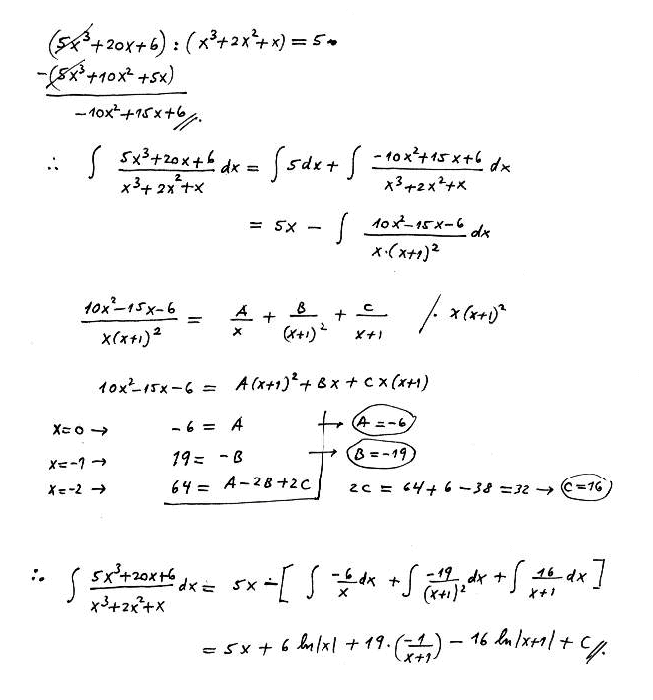 (5x³+20x+6) : (x³+2x²+x) = 5
-(5x³+10x²+5x)
-10x²+15x+6 //.
∴ ∫ (5x³+20x+6)/(x³+2x²+x) dx = ∫ 5dx + ∫ (-10x²+15x+6)/(x³+2x²+x) dx
= 5x - ∫ (10x²-15x-6)/(x·(x+1)²) dx
(10x²-15x-6)/(x(x+1)²) = A/x + B/(x+1)² + C/(x+1) /· x(x+1)²
10x²-15x-6 = A(x+1)² + Bx + Cx(x+1)
x=0 → -6 = A → A=-6
x=-1 → 19 = -B → B=-19
x=-2 → 64 = A-2B+2C 2C = 64+6-38 = 32 → C=16
∴ ∫ (5x³+20x+6)/(x³+2x²+x) dx = 5x - [ ∫ -6/x dx + ∫ -19/(x+1)² dx + ∫ 16/(x+1) dx ]
= 5x + 6 ln|x| + 19·(-1/(x+1)) - 16 ln|x+1| + C //.